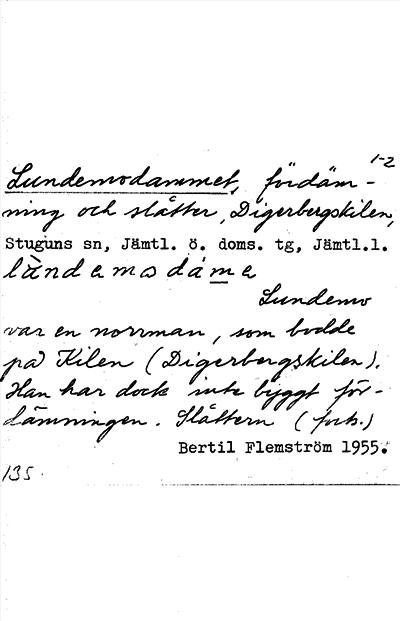 1-2
Lundemodammet, fördäm-
ning och slåtter, Digerbergskilen,
Stuguns sn, Jämtl. ö. doms. tg, Jämtl.l.
Lundemo
var en norrman, som bodde
på Kilen (Digerbergskilen).
Han har dock inte byggt för-
dämningen. Slåttern (forts.)
Bertil Flemström 1955.
135.